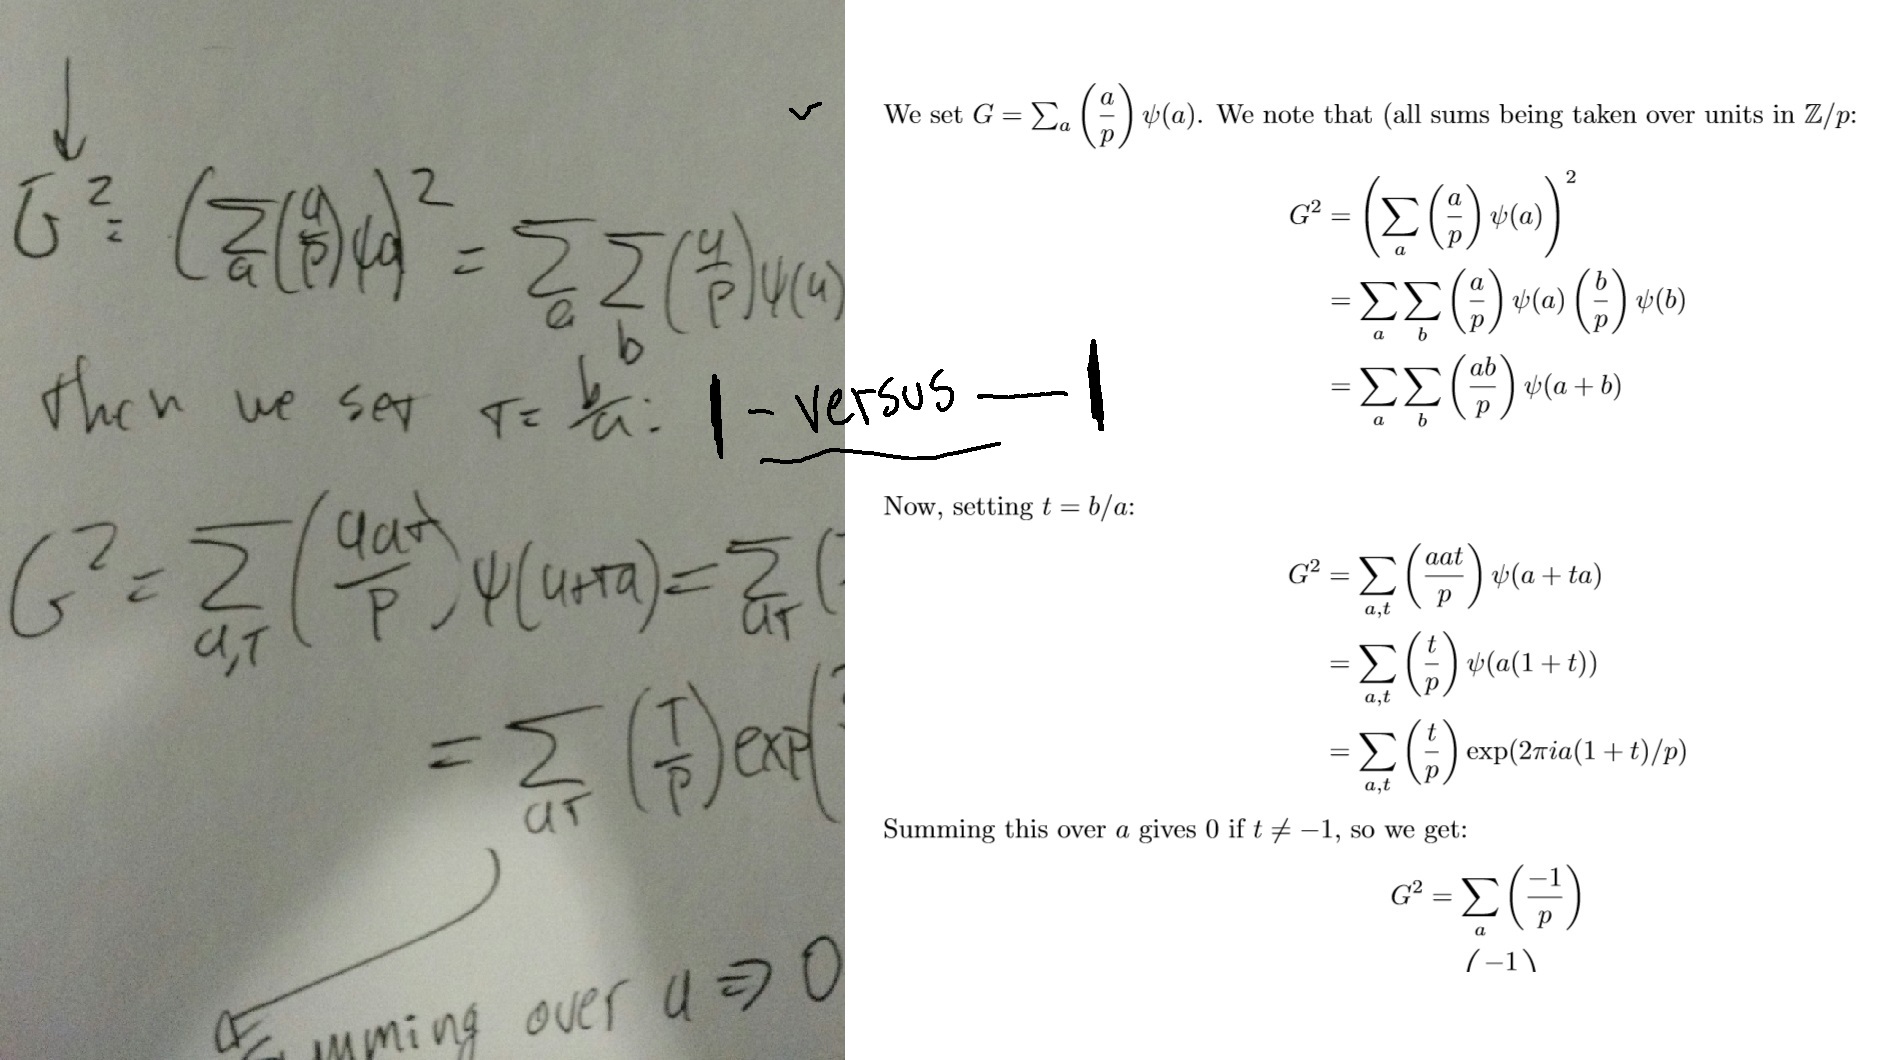 G² = (∑_a (a/p) ψa)² = ∑_a ∑_b (a/p) ψ(a)
then we set T = b/a:
G² = ∑_{a,T} (aat/p) ψ(a+Ta) = ∑_{aT} (
= ∑_{aT} (T/p) exp(
summing over a ⇒ 0
| - versus — |
We set G = ∑_a (a/p) ψ(a). We note that (all sums being taken over units in ℤ/p:
G² = (∑_a (a/p) ψ(a))²
= ∑_a ∑_b (a/p) ψ(a) (b/p) ψ(b)
= ∑_a ∑_b (ab/p) ψ(a + b)
Now, setting t = b/a:
G² = ∑_{a,t} (aat/p) ψ(a + ta)
= ∑_{a,t} (t/p) ψ(a(1 + t))
= ∑_{a,t} (t/p) exp(2πia(1 + t)/p)
Summing this over a gives 0 if t ≠ −1, so we get:
G² = ∑_a (−1/p)
(−1)